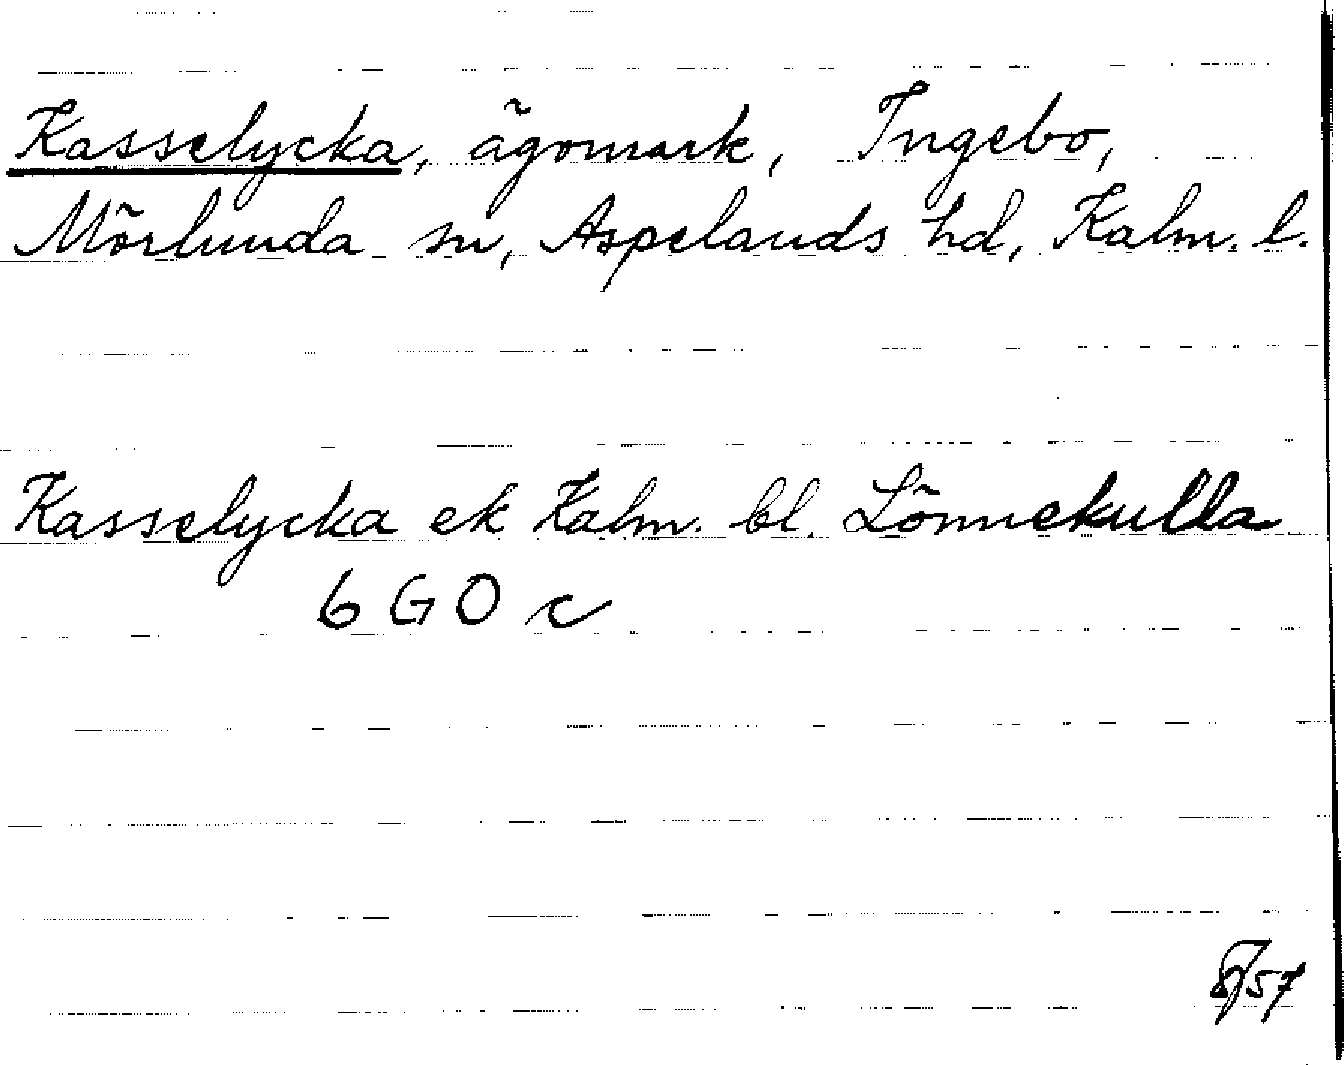 Kasselycka, ägomark, Ingebo,
Mörlunda sn, Aspelands hd, Kalm. l.
Kasselycka ek Kalm. bl. Lönnekulla
6 G O c
8/57